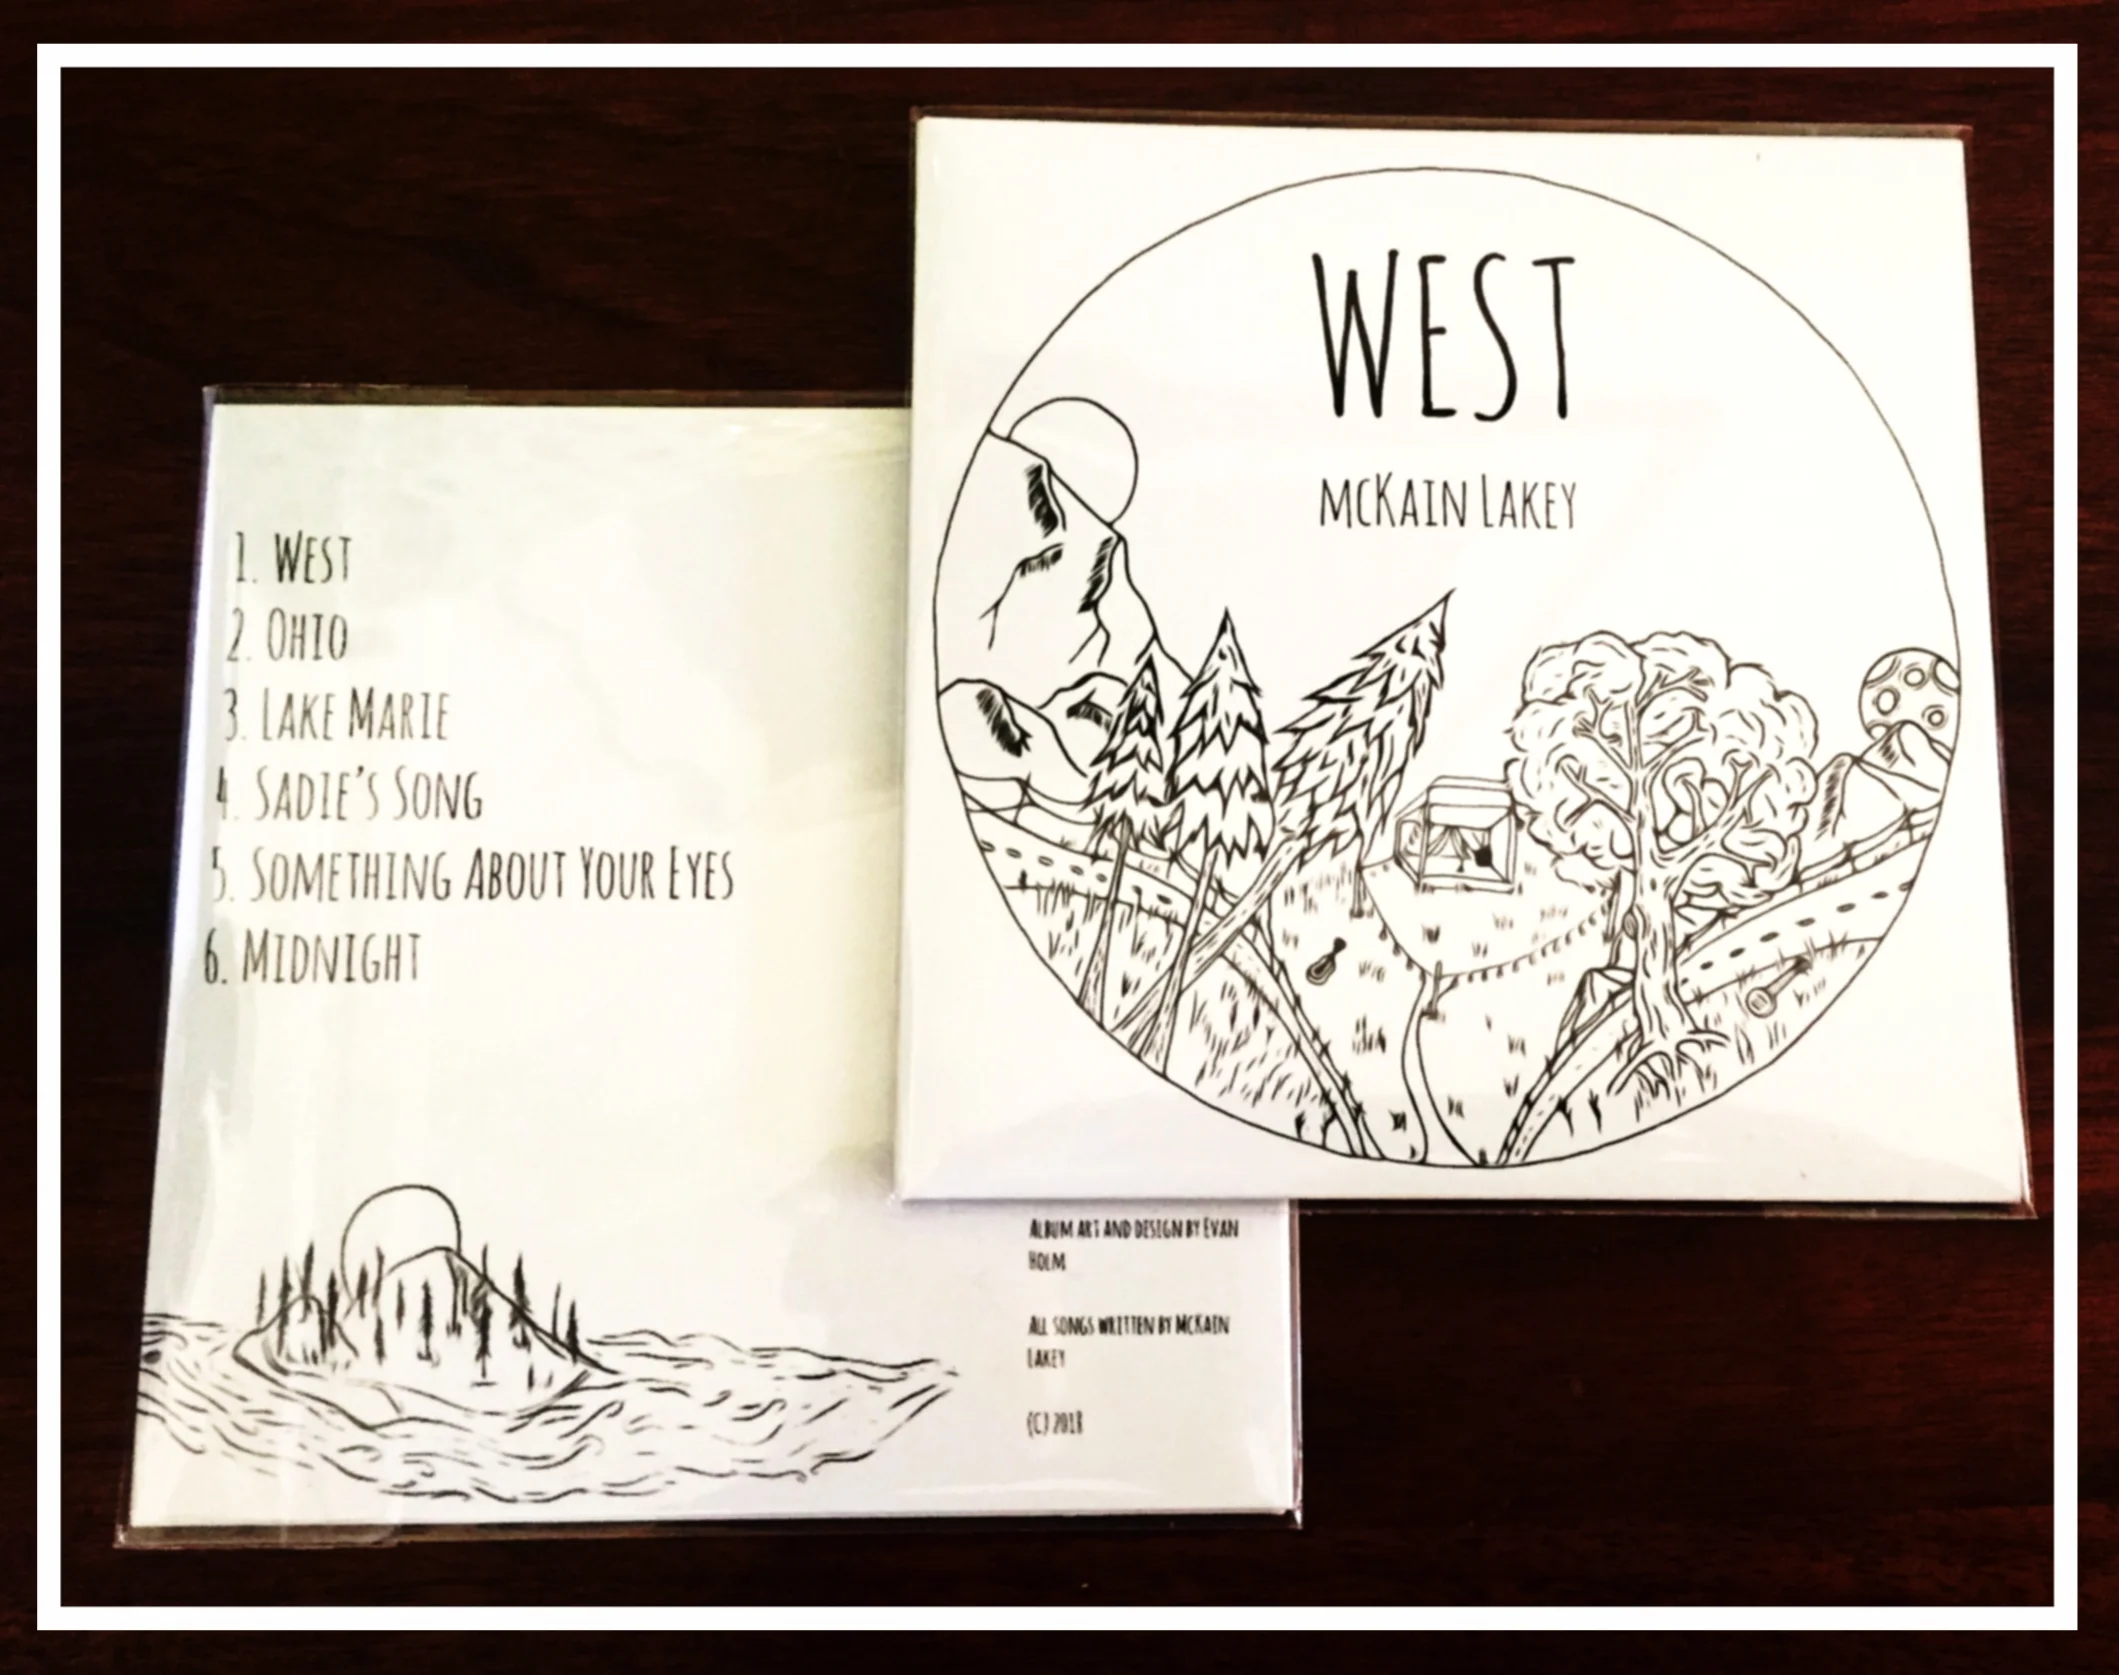 WEST
McKAIN LAKEY
1. WEST
2. OHIO
3. LAKE MARIE
4. SADIE'S SONG
5. SOMETHING ABOUT YOUR EYES
6. MIDNIGHT
ALBUM ART AND DESIGN BY EVAN
HOLM
ALL SONGS WRITTEN BY MCKAIN
LAKEY
(C) 2018